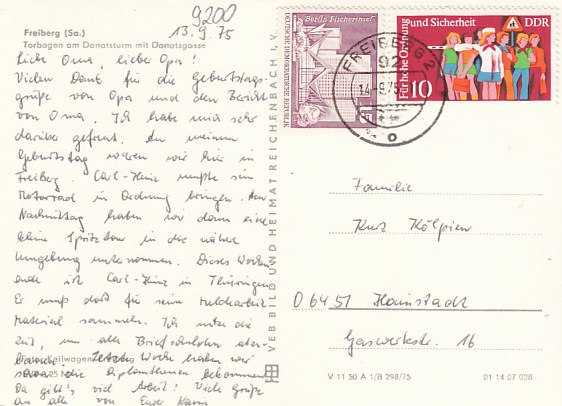 9200
13.9.75
Freiberg (Sa.)
Torbogen am Donatsturm mit Donatsgasse
Liebe Oma, lieber Opa!
Vielen Dank für die Geburtstags-
grüße von Opa und den Bericht
von Oma. Ich habe mich sehr
darüber gefreut. An meinem
Geburtstag waren wir hier in
Freiberg. Carl-Heinz mußte sein
Motorrad in Ordnung bringen. Am
Nachmittag haben wir dann eine
kleine Spritztour in die nähere
Umgebung unternommen. Dieses Wochen-
ende ist Carl-Heinz in Thüringen
Er muß dort für seine
Material sammeln. Ich nutze die
Zeit, um alle Briefschulden
Letzte Woche haben wir
schon die Diplomthemen bekommen
Da gibt's viel Arbeit! Viele Grüße
an alle von Eurer Karin
VEB BILD UND HEIMAT REICHENBACH I. V.
Berlin Fischerinsel
DEUTSCHE DEMOKRATISCHE REPUBLIK
Für hohe Ordnung und Sicherheit
DDR
10
FREIBERG 2
92
14.-9.75
Familie
Kurt Kölpien
D 6451 Hainstadt
Gaswerkstr. 16
V 11 50 A 1/B 298/75
01 14 07 028